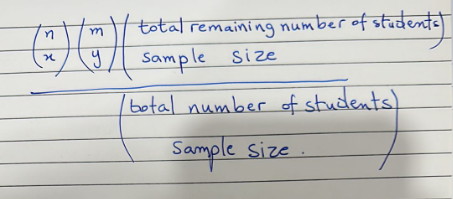 (n x) (m y) (total remaining number of students
sample size)
(total number of students
Sample size.)